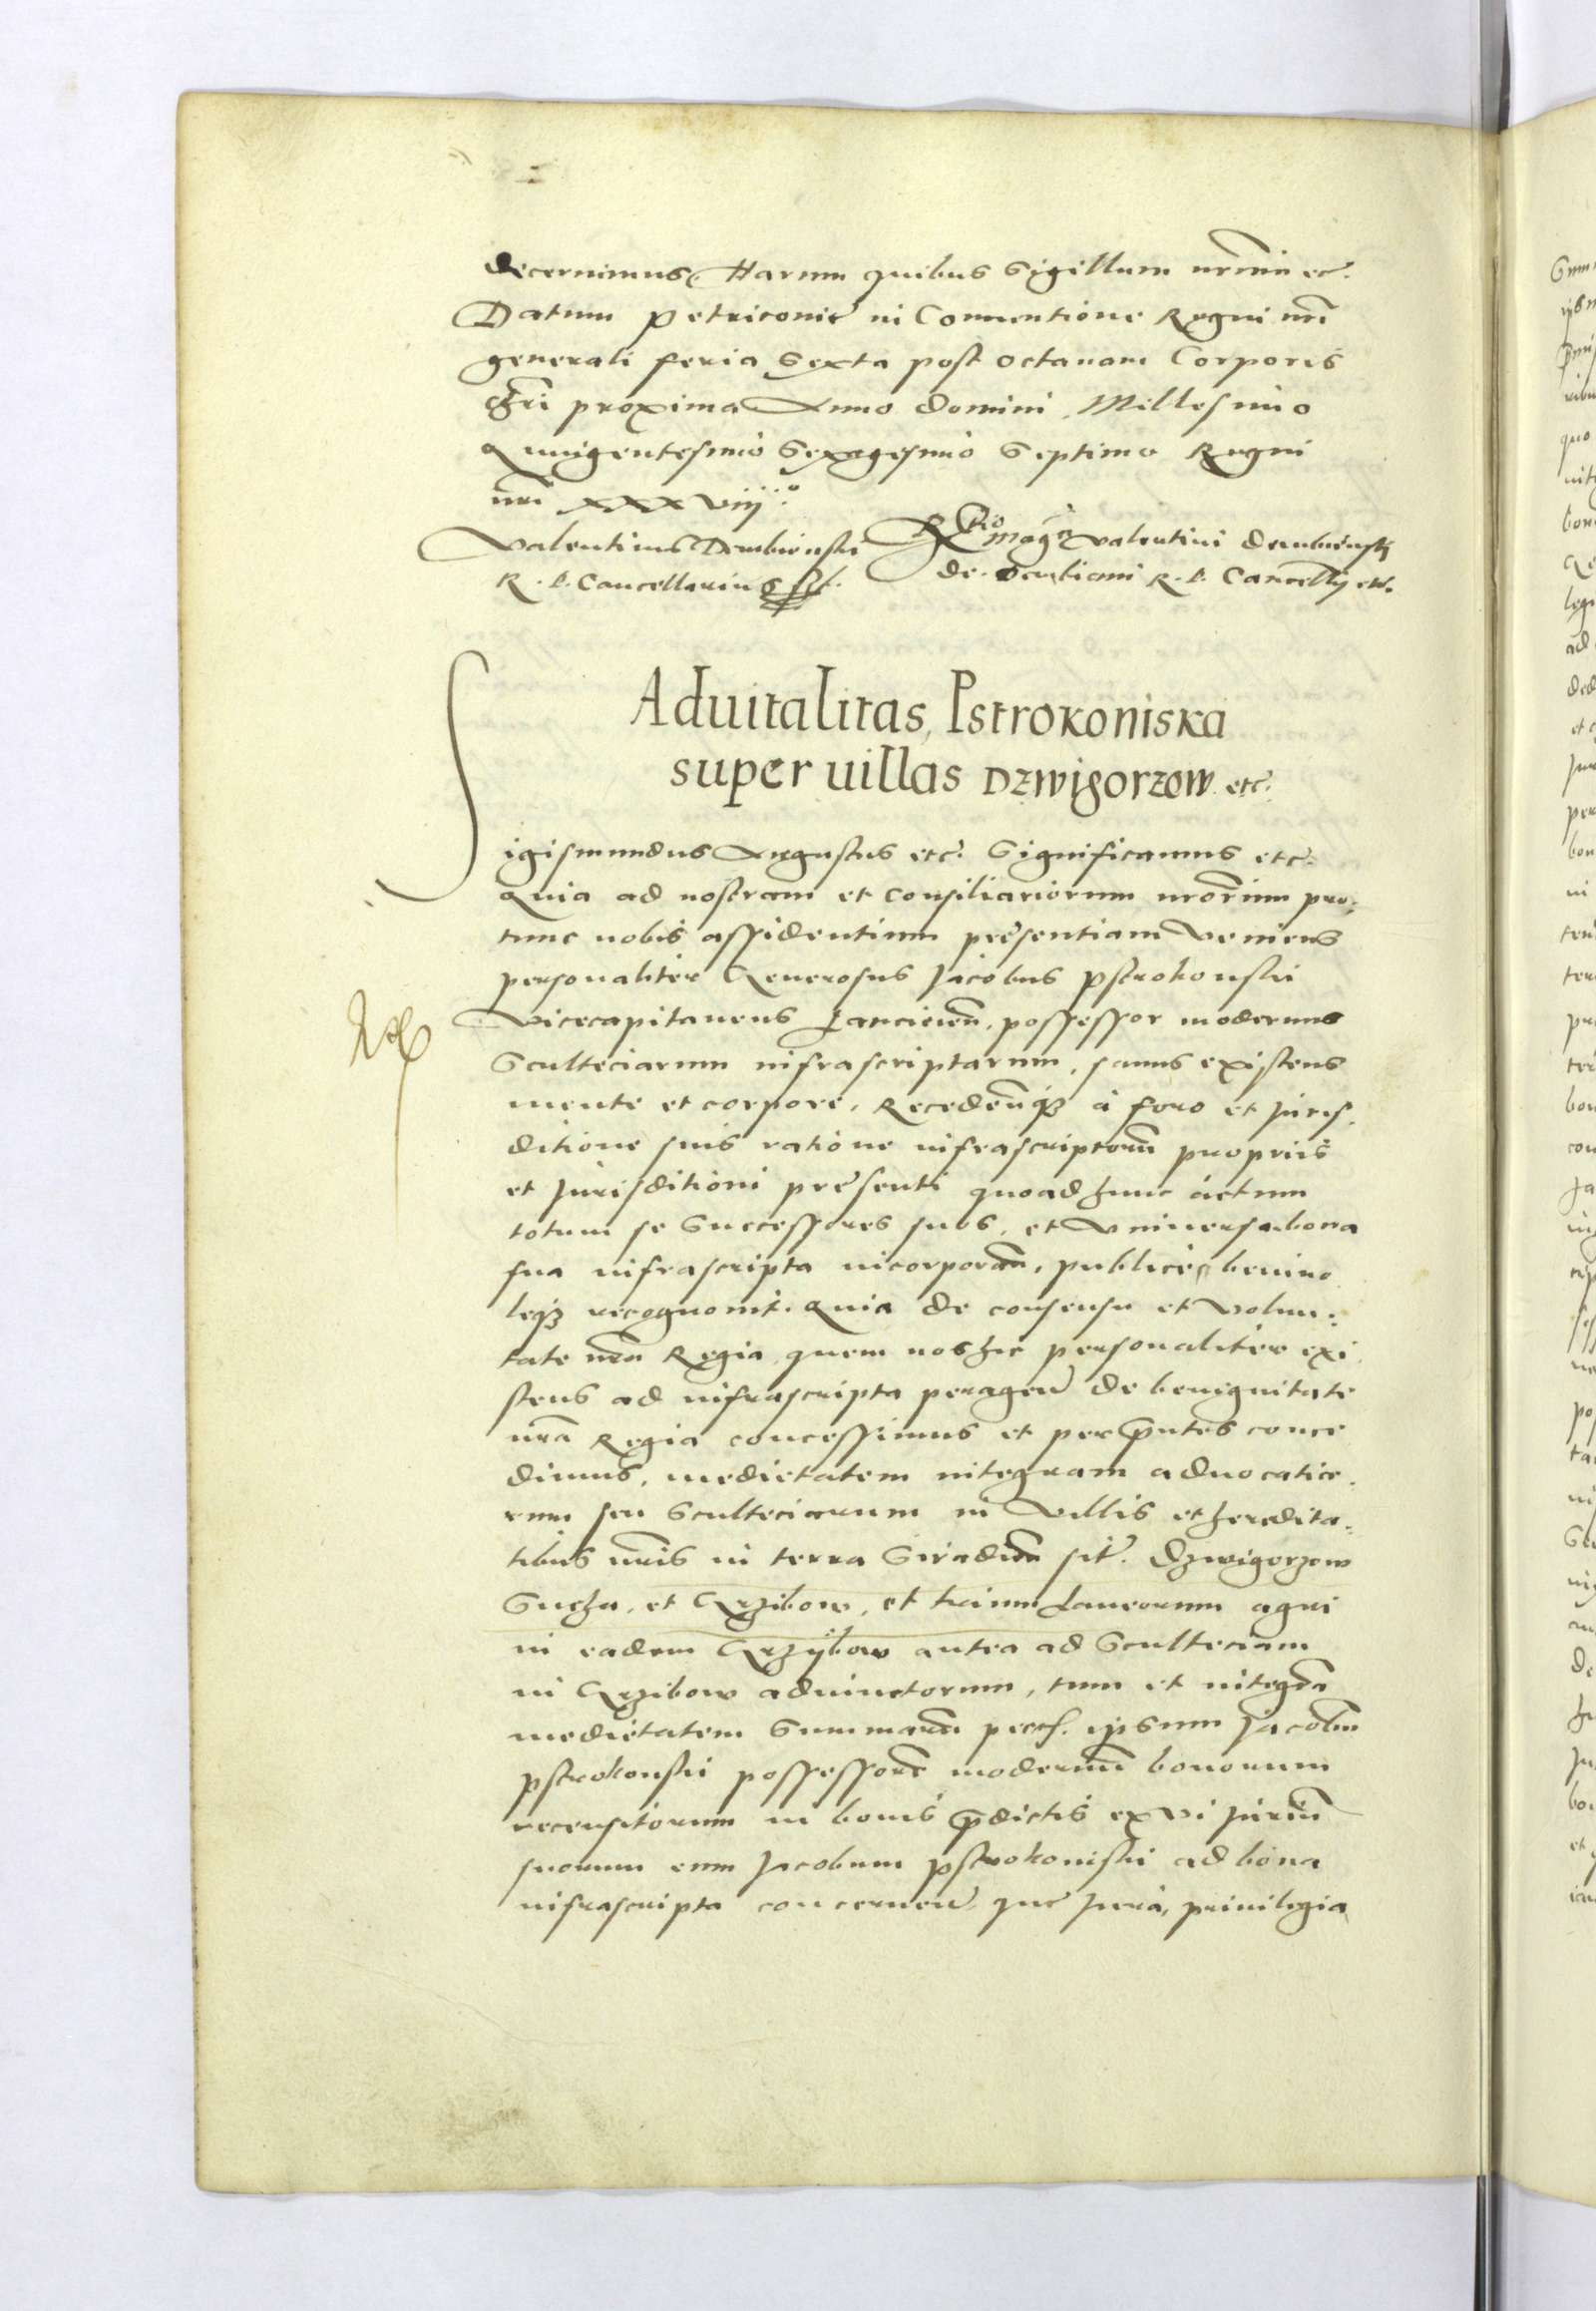 decernimus. Harum quibus Sigillum nr̃um etc.
Datum Petricouiæ in Conuentione Regni nr̃i
generali feria Sexta post octauam Corporis
Chr̃i proxima Anno Domini Millesimo
Quingentesimo Sexagesimo Septimo Regni
nr̃i xxxviij°.
Valentinus Dembienski R. P. Cancellarius sst.
R̃lo Magci Valentini Dembiensky
de Dembiani R. P. Cancellrÿ etc.
Aduitalitas Pstrokoniska
super uillas Dzwigorzow etc.
Sigismundus Augustus etc. Significamus etc.
Quia ad nostram et Consiliariorum nrorum pro
tunc nobis assidentium præsentiam veniens
personaliter Generosus Jacobus Pstrokonski
Vicecapitaneus Lancicien̄. possessor modernus
Sculteciarum infrascriptarum, sanus existens
mente et corpore, Recedenq3 à foro et Juris
ditione suis ratione infrascriptorū propriis
et Jurisditioni præsenti quoad hunc actum
totum se Successores suos, et Vniuersa bona
sua infrascripta incorporan̄, publicè libenino
leq3 recognouit. Quia de consensu et Volun
tate nr̃a Regia, quem nos hic personaliter exi
stens ad infrascripta peragen̄ de benignitate
nr̃a Regia concessimus et per p̄ntes conce
dimus, medietatem integram aduocatia
rum seu Sculteciarum in Villis et hæredita
tibus nr̃is in terra Siradien̄ sit̃. Dzwigorzow
Sucha, et Grzibow, et trium Laneorum agri
in eadem Grzÿbow antea ad Sculteciam
in Grzibow adiunctorum, tum et integrā
medietatem Summarū per ipsum Jacobū
Pstrokonski possessorē modernū bonorum
recensitorum in bonis p̄dictis ex vi Juriū
suorum eum Jacobum Pstrokoniski ad bona
infrascripta concernen̄ quæ Jura, priuilegia